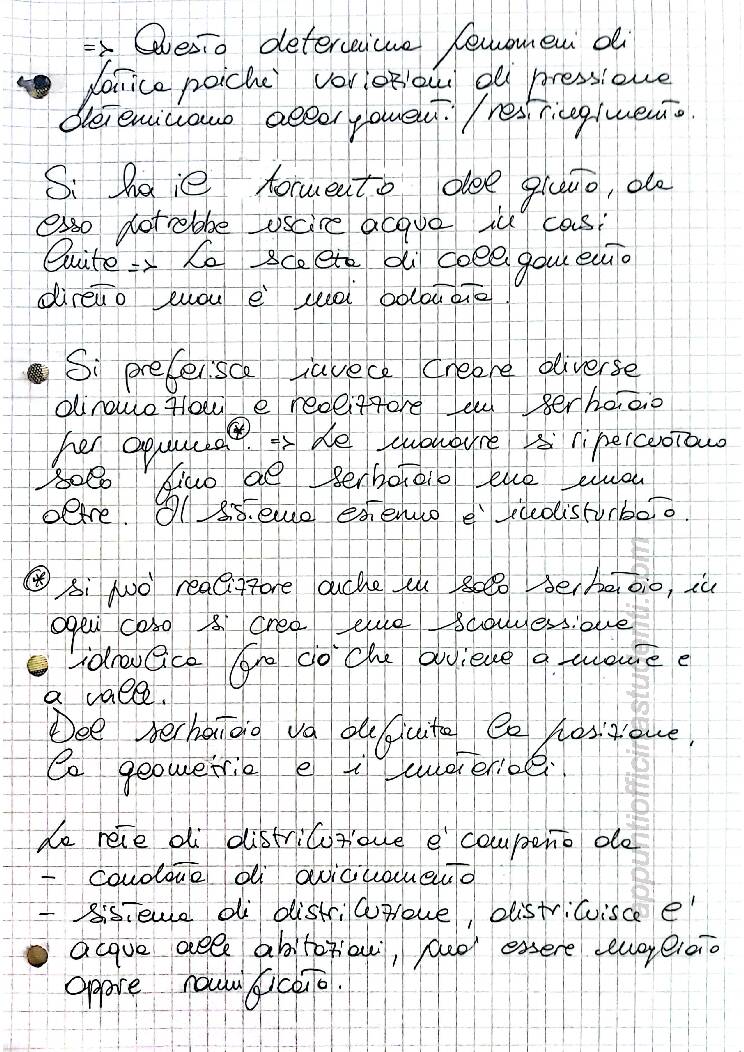 => Questo determina fenomeni di
fatica poichè variazioni di pressione
determinano allargamenti/restringimento.
Si ha il tormento del giunto, da
esso potrebbe uscire acqua in casi
limite => La scelta di collegamento
diretto non è mai adottata.
Si preferisce invece creare diverse
diramazioni e realizzare un serbatoio
per ognuna*. => Le manovre si ripercuotono
solo fino al serbatoio ma non
oltre. Il sistema esterno è indisturbato.
* si può realizzare anche un solo serbatoio, in
ogni caso si crea una sconnessione
idraulica fra ciò che avviene a monte e
a valle.
Del serbatoio va definita la posizione,
la geometria e i materiali.
La rete di distribuzione è composta da
- condotta di avvicinamento
- sistema di distribuzione, distribuisce l'
acqua alle abitazioni, può essere magliato
oppre ramificato.
appuntiofficinastudenti.com